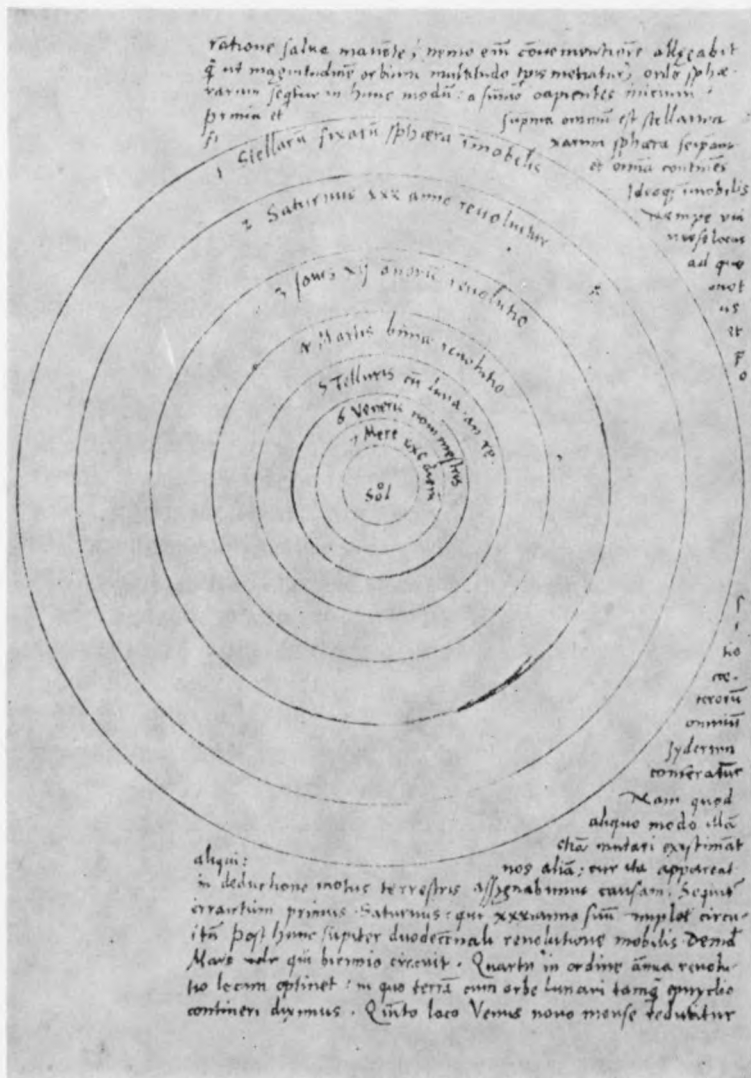 ratione salua manēte, nemo em̄ cōuenientiorē allegabit
q̄ ut magnitudinē orbium multitudo tp̄is metiatur, ordo sphæ-
rarum seq̄tur in hunc modū: a sūmo capientes initium.
prima et suprema omniū est stellarum
fixarum sphæra seipsam
et omnia continēs
Ideoq̄ imobilis
nempe uni
uersi locus
ad quē
mot
us
et
p
o
1 Stellarū fixarū sphæra īmobilis
2 Saturnus xxx anno reuoluitur
3 Iouis xij annorū reuolutio
4 Martis bima reuolutio
5 Telluris cū luna an. re.
6 Veneris nonimestris
7 Merc xxc dierū
Sol
s
i
tio
cæ-
terorū
omniū
syderum
conferatur
Nam quod
aliquo modo illā
etiā mutari existimāt
aliqui: nos aliā, cur ita appareat
in deductione motus terrestris assignabimus causam. Sequit̄
errantium primus Saturnus: qui xxx anno suū complet circu-
itū post hunc Iupiter duodecennali reuolutione mobilis. Deinde
Mars qui biennio circuit. Quartū in ordine annua reuolu-
tio locum optinet: in quo terrā cum orbe lunari tamq̄ epicyclo
contineri diximus. Quīto loco Venus nono mense reducitur